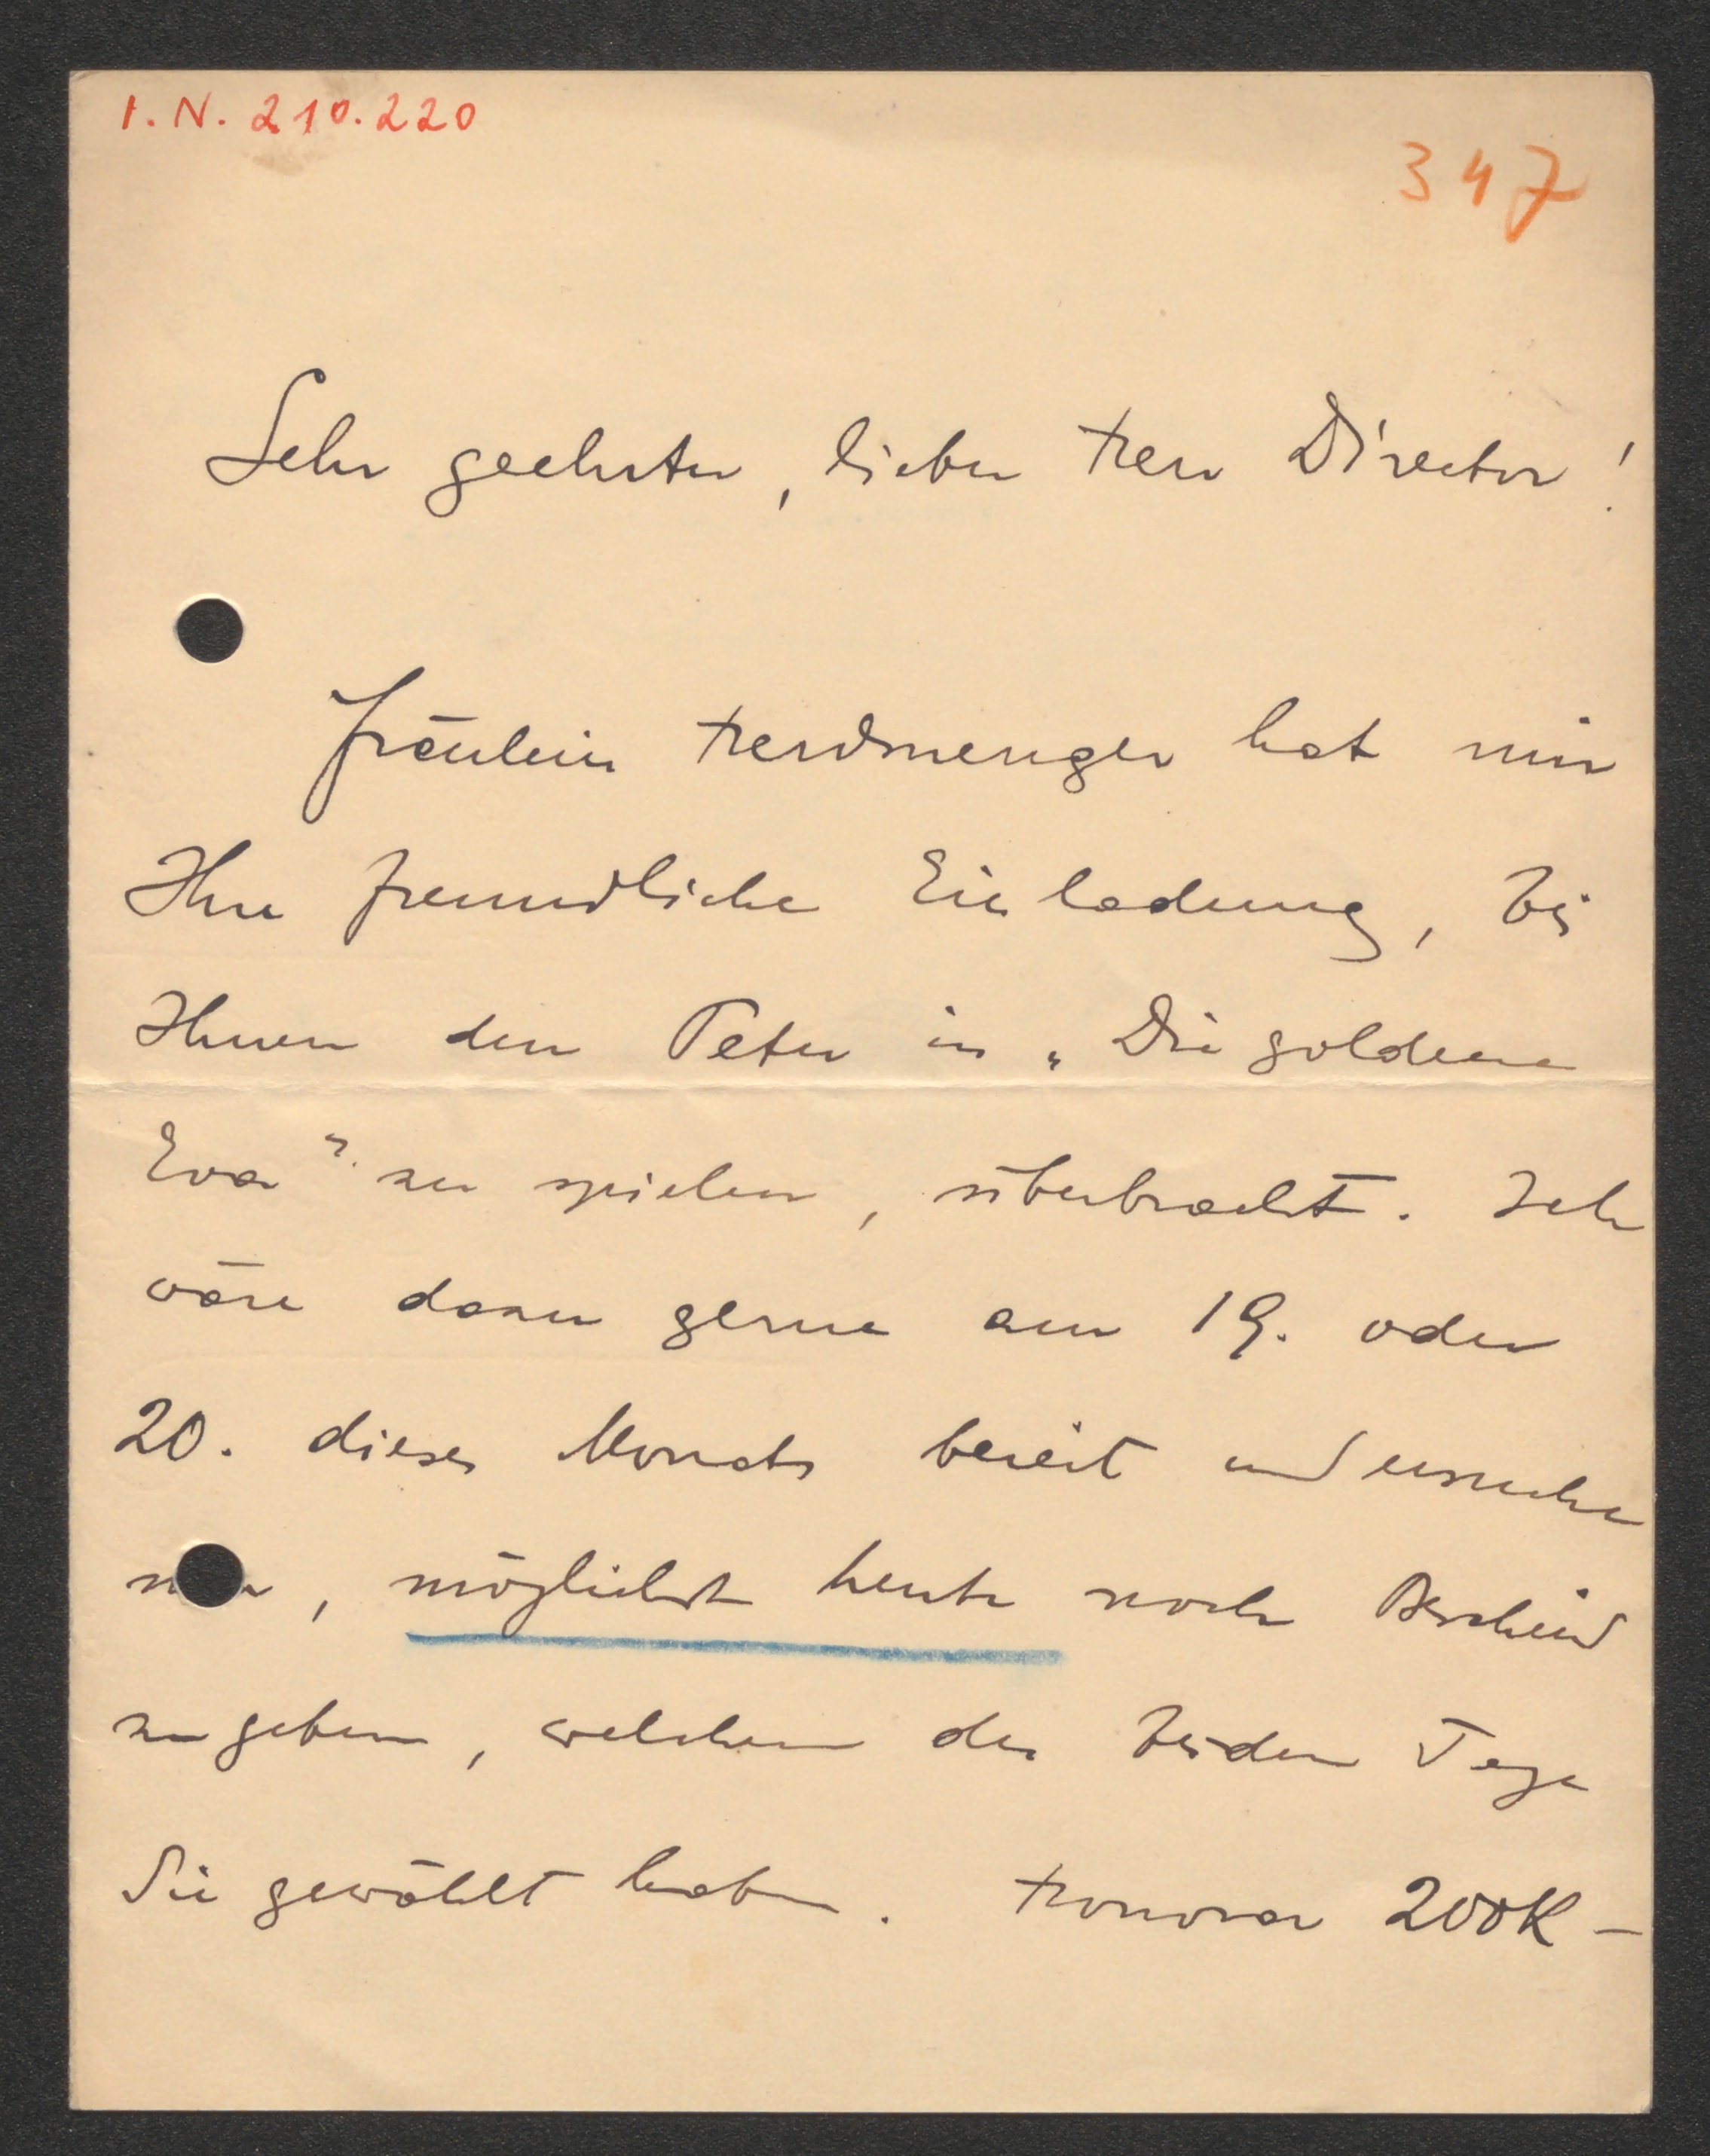 I.N. 210.220
347
Sehr geehrter, lieber Herr Director!
Fräulein Herdmenger hat mir
Ihre freundliche Einladung, bei
Ihnen den Peter in „Die goldene
Eva" zu spielen, überbracht. Ich
wäre dazu gerne am 19. oder
20. dieses Monats bereit und ersuche
, möglichst heute noch Bescheid
zu geben, welchen der beiden Tage
Sie gewählt haben. Honorar 200K –